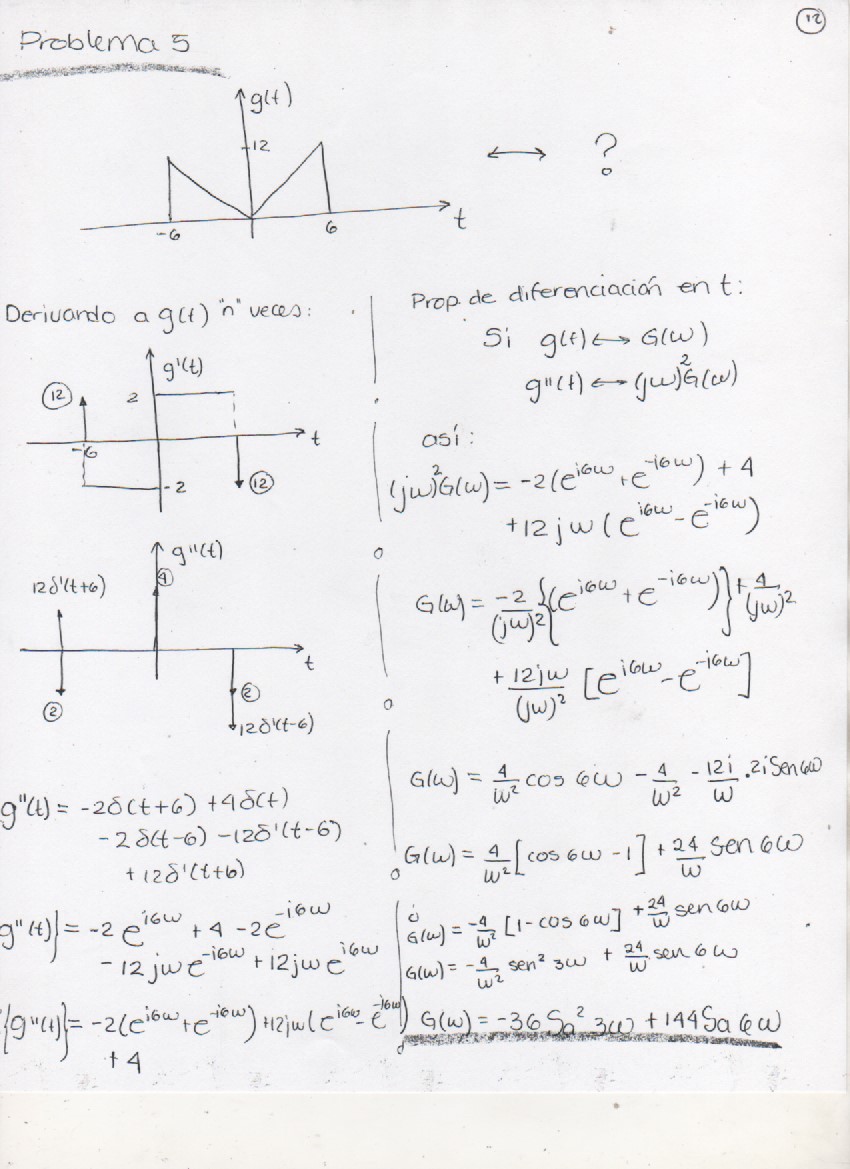 12
Problema 5
g(t)
12
↔ ?
-6 6 t
Derivando a g(t) "n" veces:
g'(t)
12 2
t
-6
-2 12
g''(t)
4
12δ'(t+6)
t
2 2
12δ'(t-6)
g''(t) = -2δ(t+6) +4δ(t)
-2δ(t-6) -12δ'(t-6)
+12δ'(t+6)
g''(t)} = -2e^{i6ω} +4 -2e^{-i6ω}
-12jωe^{-i6ω} +12jωe^{i6ω}
{g''(t)} = -2(e^{i6ω}+e^{-i6ω}) +12jω(e^{i6ω}-e^{-i6ω})
+4
Prop. de diferenciación en t:
Si g(t) ↔ G(ω)
g''(t) ↔ (jω)²G(ω)
así:
(jω)²G(ω) = -2(e^{i6ω}+e^{-i6ω}) + 4
+12jω(e^{i6ω}-e^{-i6ω})
G(ω) = -2/(jω)² {(e^{i6ω}+e^{-i6ω})} + 4/(jω)²
+ 12jω/(jω)² [e^{i6ω}-e^{-i6ω}]
G(ω) = 4/ω² cos 6ω - 4/ω² - 12i/ω .2i Sen 6ω
G(ω) = 4/ω² [cos 6ω -1] + 24/ω Sen 6ω
ó
G(ω) = -4/ω² [1-cos 6ω] + 24/ω sen 6ω
G(ω) = -4/ω² sen² 3ω + 24/ω sen 6ω
G(ω) = -36 Sa² 3ω + 144 Sa 6ω